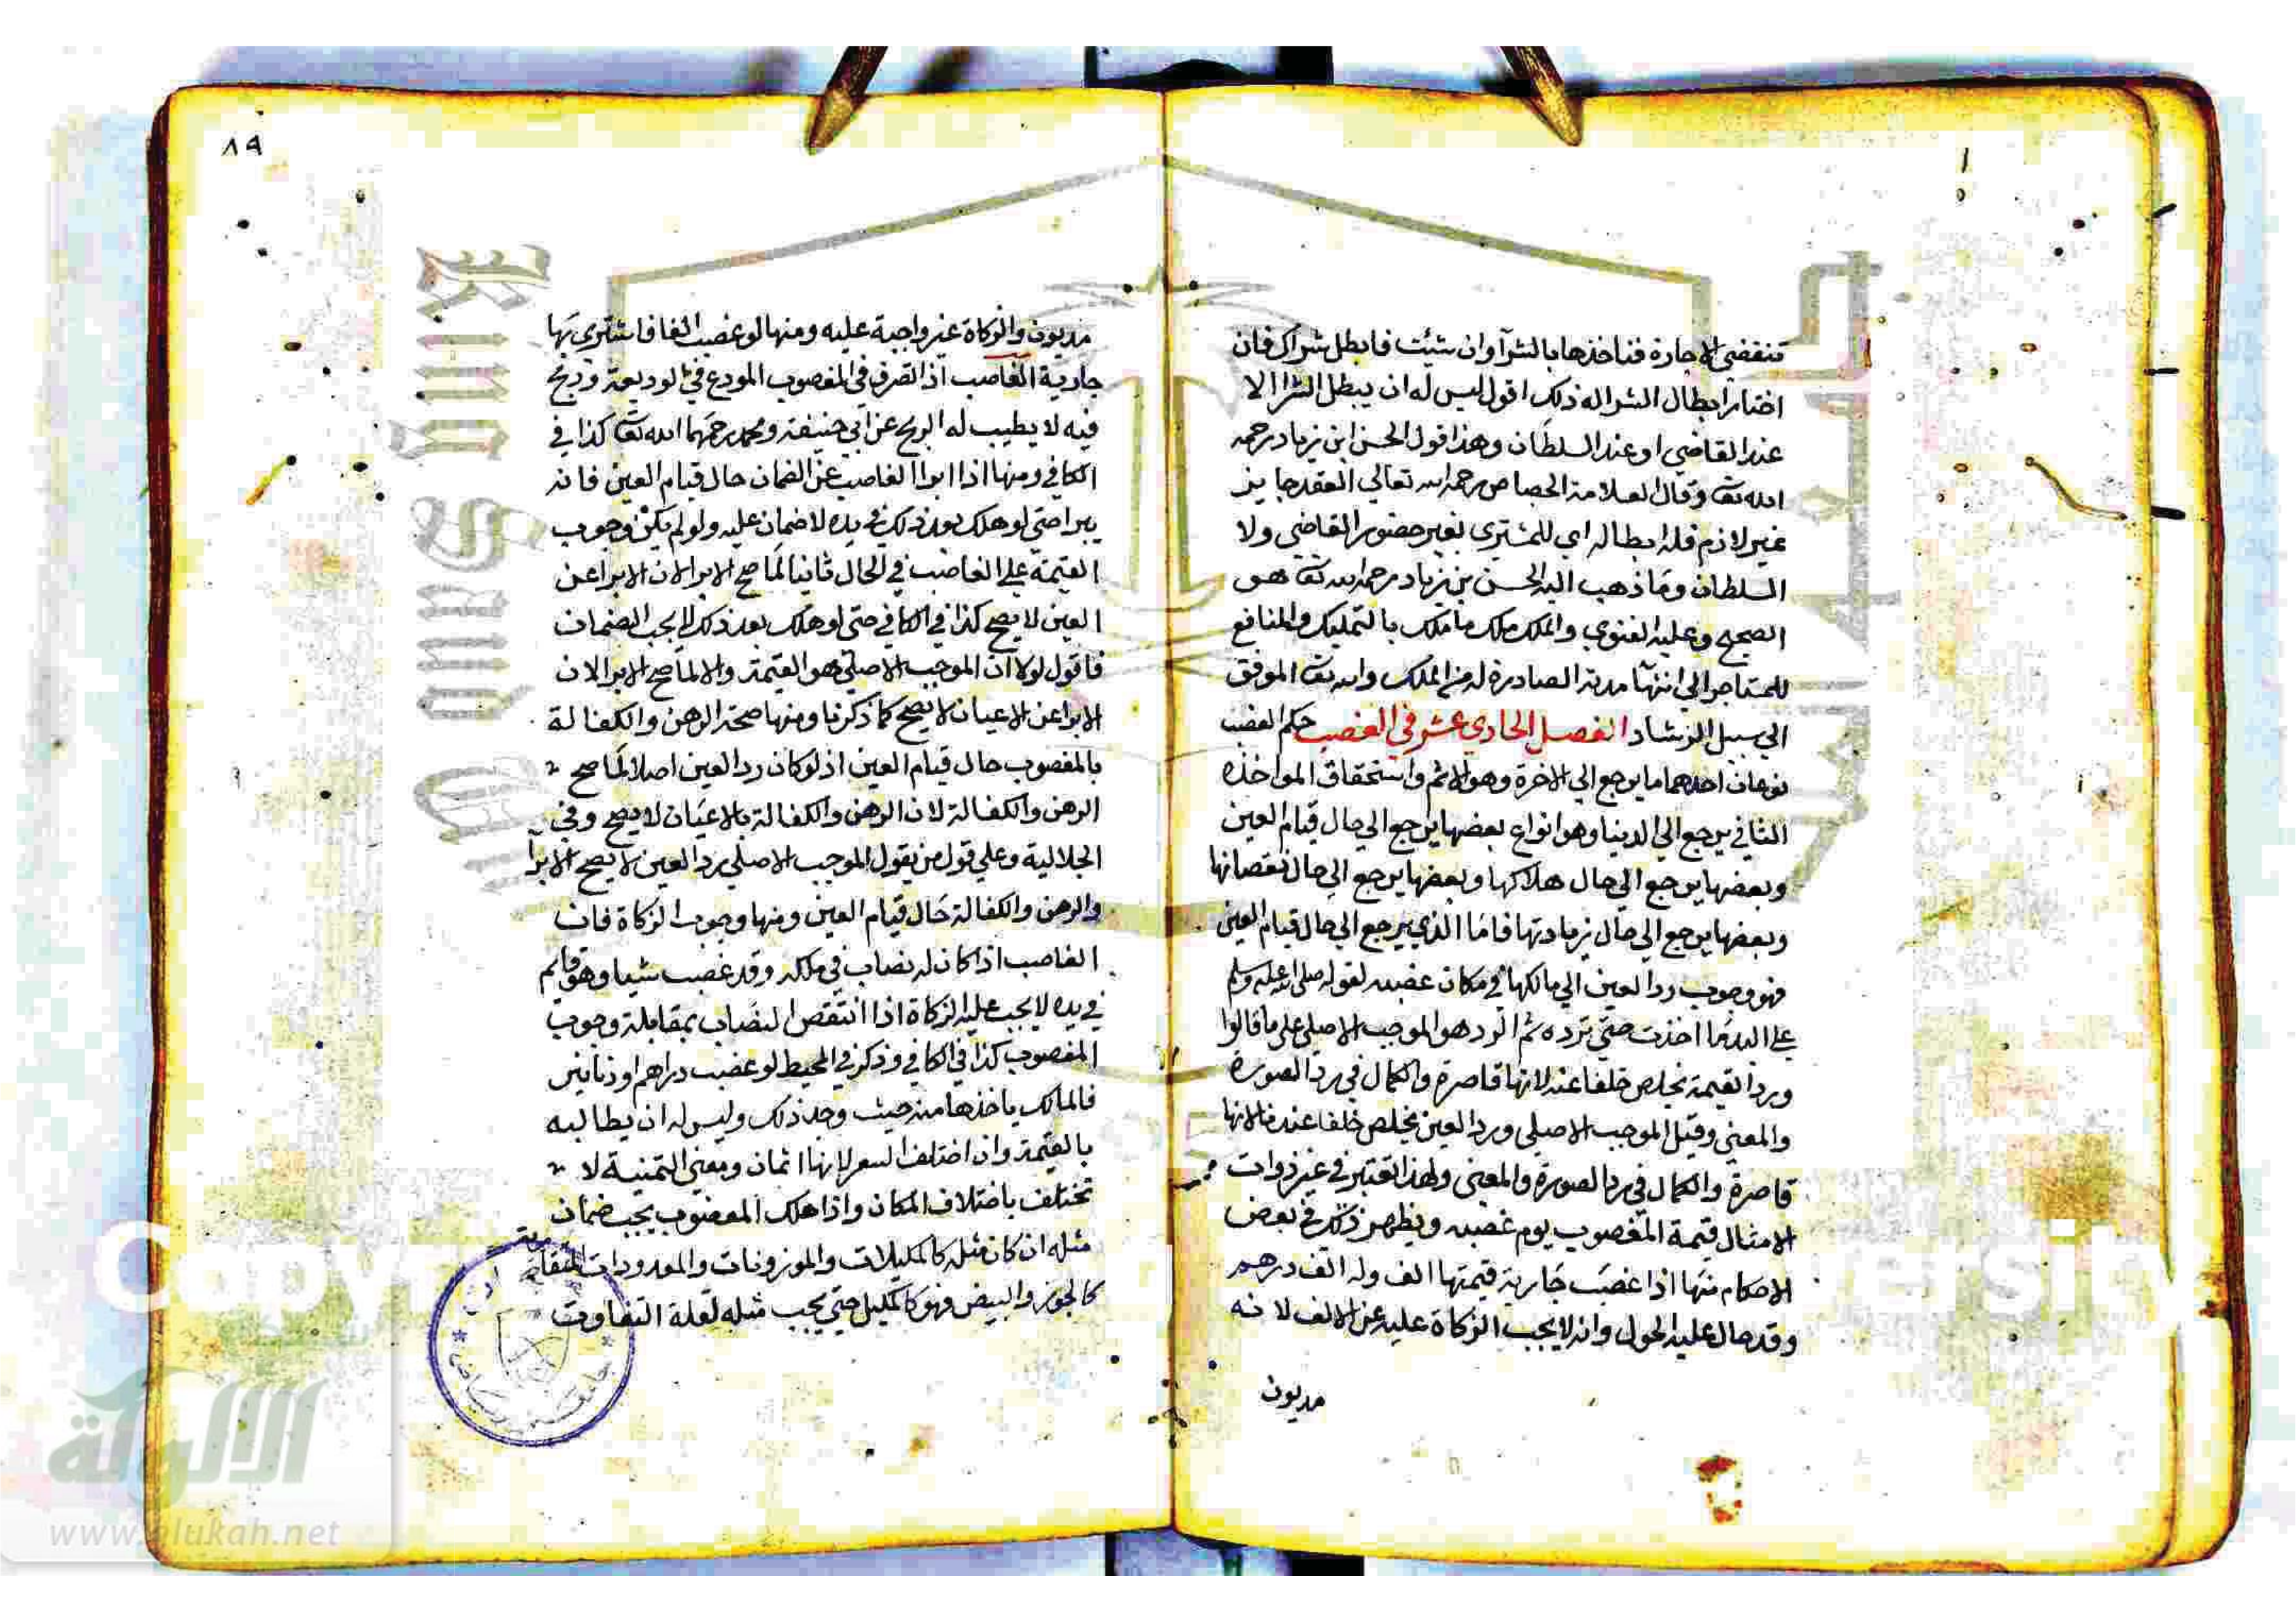 تنقضي الاجارة فتاخذها بالشرآ وان شئت فابطل شراك فان
اختار ابطال الشرا له ذلك اقول ليس له ان يبطل الشرا الا
عند القاضي او عند السلطان وهذا قول الحسن ابن زياد رحمه
الله تعا وقال العلامة الجصاص رحمه الله تعالي العقد جايز
غير لازم فله ابطاله اي للمشتري بغير حضور القاضي ولا
السلطان وما ذهب اليه الحسن بن زياد رحمه الله تعا هو
الصحيح وعليه الفتوي والملك ملك ما ملك بالتمليك والمنافع
للمستاجر الي انتهآ مدته الصادرة له من الملك والله تعا الموفق
الي سبيل الرشاد الفصل الحادي عشر في الغصب حكم الغصب
نوعان احدهما ما يرجع الي الاخرة وهو الاثم واستحقاق المواخذه
الثاني يرجع الي الدنيا وهو انواع بعضها يرجع الي حال قيام العين
وبعضها يرجع الي حال هلاكها وبعضها يرجع الي حال نقصانها
وبعضها يرجع الي حال زيادتها فاما الذي يرجع الي حال قيام العين
فهو وجوب رد العين الي مالكها في مكان غصبه لقوله صلى الله عليه وسلم
علي اليد ما اخذت حتي ترده ثم الرد هو الموجب الاصلي علي ما قالوا
ورد القيمة مخلص خلفا عنه لانها قاصرة والكمال في رد الصورة
والمعني وقيل الموجب الاصلي ورد العين مخلص خلفا عنه لانها
قاصرة والكمال في رد الصورة والمعني ولهذا تعتبر في غير ذوات
الامثال قيمة المغصوب يوم غصبه ويظهر ذلك في بعض
الاحكام منها اذا غصب جارية قيمتها الف وله الف درهم
وقد حال عليه الحول وانه لا يجب الزكاة عليه عن الالف لانه
مديون
٨٩
مديون والزكاة غير واجبة عليه ومنها لو غصب الفا فاشتري بها
جارية الغاصب اذا تصرف في المغصوب المودع في الوديعة وربح
فيه لا يطيب له الربح عن ابي حنيفة ومحمد رحمهما الله تعا كذا في
الكافي ومنها اذا ابرا الغاصب عن الضمان حال قيام العين فانه
يبرا حتي لو هلك بعد ذلك في يده لا ضمان عليه ولو لم يكن وجوب
القيمة علي الغاصب في الحال ثانيا لما صح الابرا لان الابرا عن
العين لا يصح كذا في الكافي حتي لو هلك بعد ذلك لا يجب الضمان
فاقول لولا ان الموجب الاصلي هو القيمة والا لما صح الابرا لان
الابرا عن الاعيان لا يصح كما ذكرنا ومنها صحة الرهن والكفالة
بالمغصوب حال قيام العين اذ لو كان رد العين اصلا لما صح
الرهن والكفالة لان الرهن والكفالة بالاعيان لا يصح وفي
الجلالية وعلي قول من يقول الموجب الاصلي رد العين لا يصح الابرآ
والرهن والكفالة حال قيام العين ومنها وجوب الزكاة فان
الغاصب اذا كان له نصاب في ملكه وقد غصب شيا وهو قايم
في يده لا يجب عليه الزكاة اذا انتقص النصاب بمقابلة وجوب
المغصوب كذا في الكافي وذكر في المحيط لو غصب دراهم او دنانير
فالمالك ياخذها منه حيث وجد ذلك وليس له ان يطالبه
بالقيمة وان اختلف السعر لانها اثمان ومعني الثمنية لا
تختلف باختلاف المكان واذا هلك المغصوب يجب ضمان
مثله ان كان مثله كالمكيلات والموزونات والمعدودات المتقاربة
كالجوز والبيض فهو كالمكيل حتي يجب مثله لقلة التفاوت
الألوكة
www.alukah.net